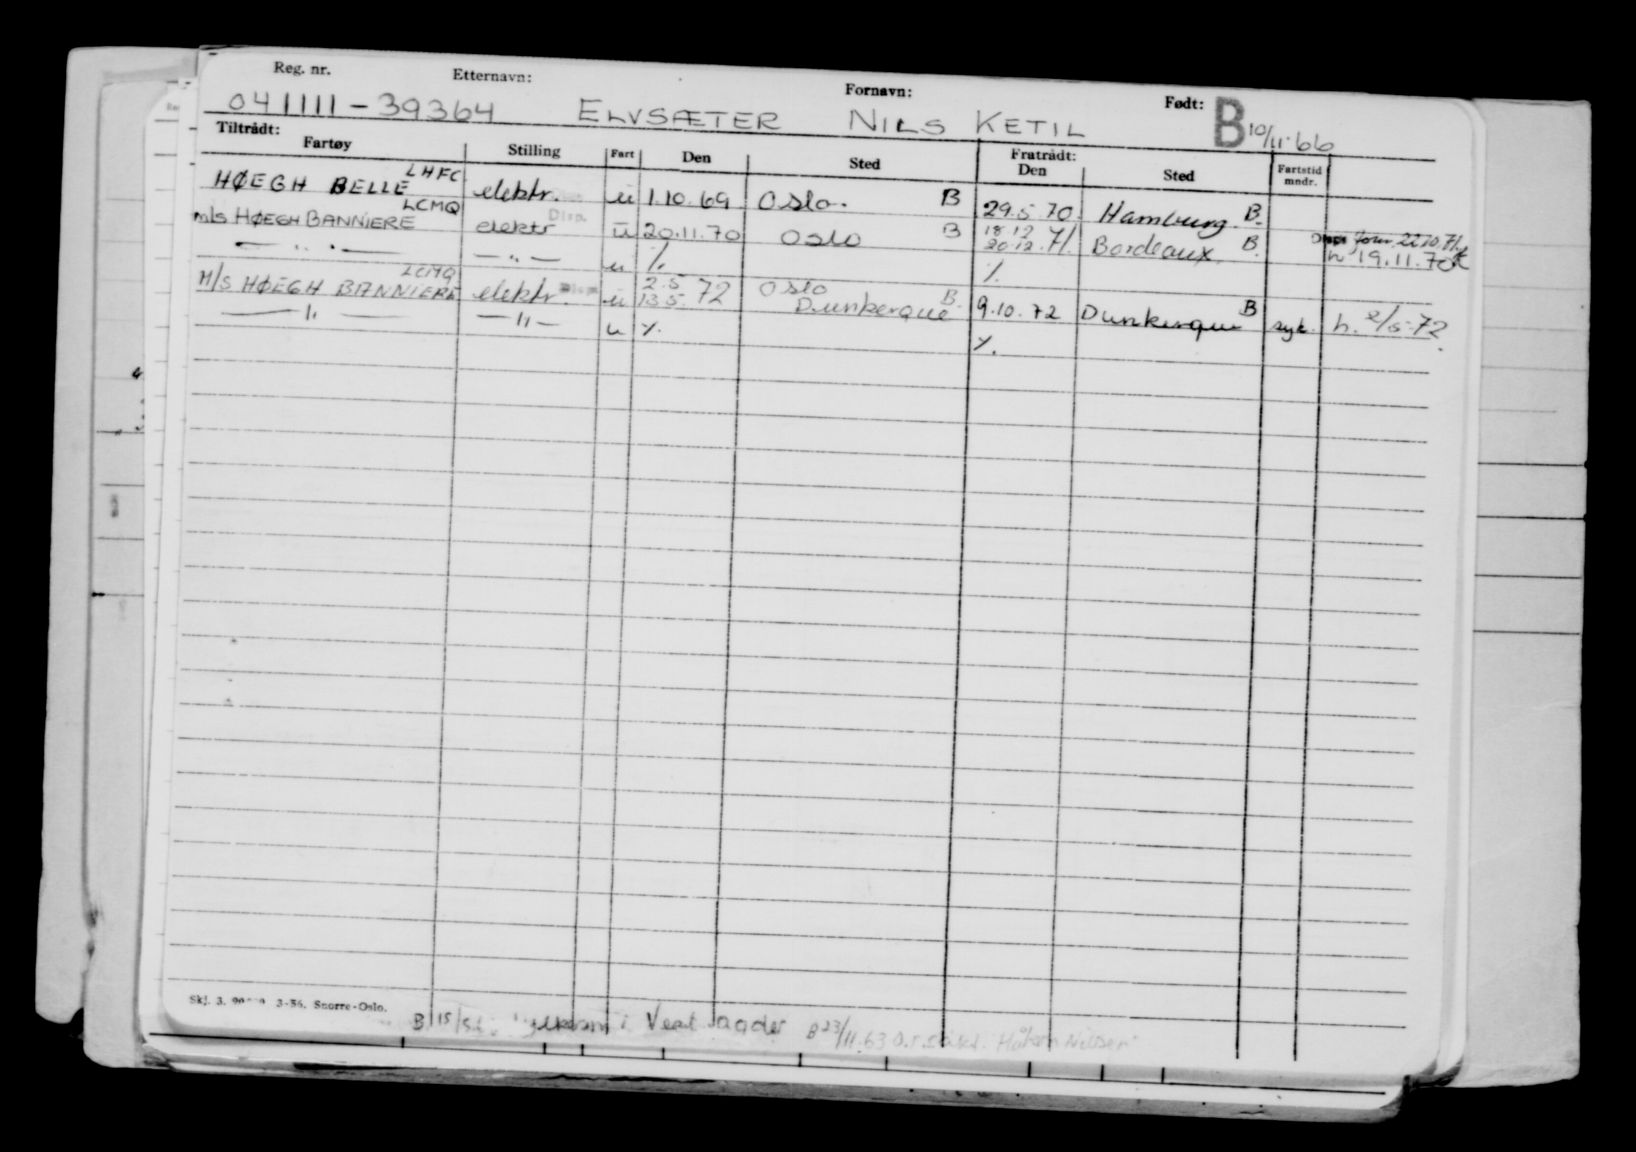 Reg. nr. Etternavn: Fornavn: Født:
041111-39364 ELVSÆTER NILS KETIL B 10/11.66
Tiltrådt: Fratrådt:
Fartøy Stilling Fart Den Sted Den Sted Fartstid mndr.
HØEGH BELLE LHFC elektr. u 1.10.69 Oslo. B 29.5.70 Hamburg. B.
m/s HØEGH BANNIERE LCMQ elektr Disp. u 20.11.70 Oslo B 18.12 20.12.71. Bordeaux. B. 22.10.71
— " — — " — u ⁒ ⁒ h 19.11.70
M/S HØEGH BANNIERE LCMQ elektr. Disp u 2.5 13.5.72 Oslo Dunkerque B. 9.10.72 Dunkerque B syk. h. 2/5-72
— " — — " — u ⁒ ⁒
Skj. 3. 3-56. Snorre-Oslo.
B 15/ i Vest B 23/11.63 Håkon Nilsen